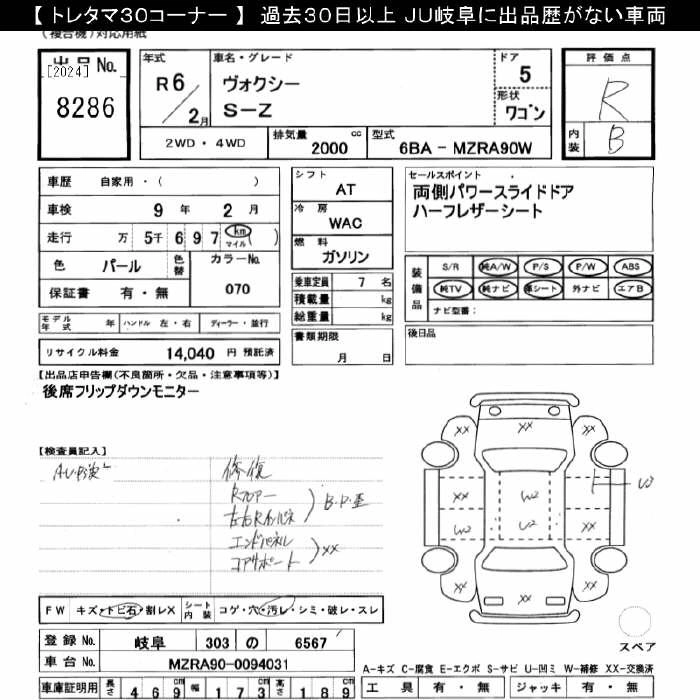 【 トレタマ30コーナー 】 過去30日以上 JU岐阜に出品歴がない車両
(複合機)対応用紙
出品No.
[2024]
8286
年式
R6/2月
車名・グレード
ヴォクシー
S-Z
ドア
5
形状
ワゴン
評価点
R
内装
B
2WD・4WD
排気量
2000 cc
型式
6BA - MZRA90W
車歴 自家用・( )
車検 9年 2月
走行 万 5千 6 9 7 km マイル ( )
色 パール 色替 カラーNo.
保証書 有・無 070
モデル年式 年 ハンドル 左・右 ディーラー・並行
リサイクル料金 14,040 円 預託済
シフト
AT
冷房
WAC
燃料
ガソリン
乗車定員 7 名
積載量 kg
総重量 kg
書類期限
月 日
セールスポイント
両側パワースライドドア
ハーフレザーシート
装備品
S/R 純A/W P/S P/W ABS
純TV 純ナビ 革シート 外ナビ エアB
ナビ型番:
後日品
【出品店申告欄(不良箇所・欠品・注意事項等)】
後席フリップダウンモニター
【検査員記入】
修復
Rフロアー
B.P歪
エンドパネル
コアサポート
XX
XX
XX XX
XX W2 U2
W2 U2 W2
XX XX
XX
FW キズ・トビ石・割レX シート内装 コゲ・穴・汚レ・シミ・破レ・スレ
登録No. 岐阜 303 の 6567
車台No. MZRA90-0094031
車庫証明用 長さ 469 cm 幅 173 cm 高さ 189 cm
スペア
A-キズ C-腐食 E-エクボ S-サビ U-凹ミ W-補修 XX-交換済
工具 有・無 ジャッキ 有・無